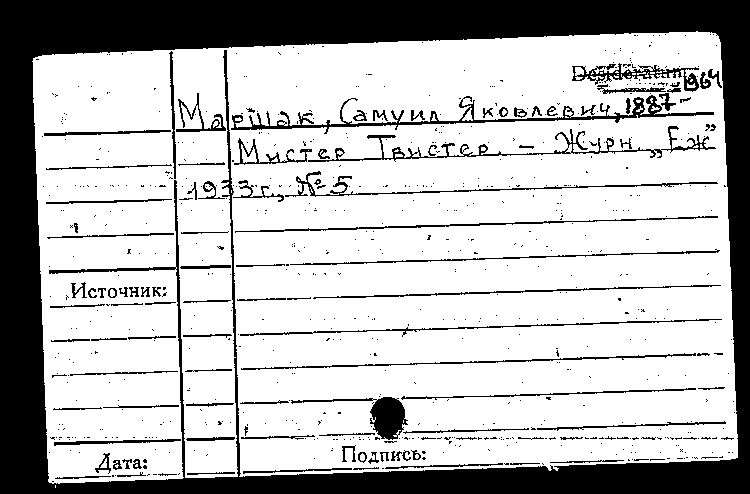 Desideratum
Маршак, Самуил Яковлевич, 1887-1964
Мистер Твистер. - Журн. „Еж"
1933 г., № 5
Источник:
Дата:
Подпись: